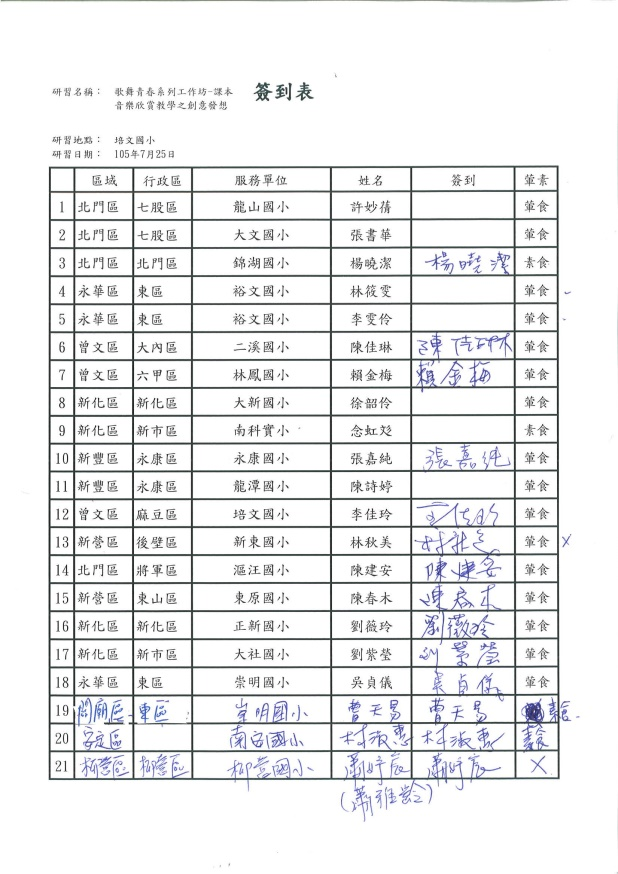 研習名稱： 歌舞青春系列工作坊-課本 簽到表
音樂欣賞教學之創意發想
研習地點： 培文國小
研習日期： 105年7月25日
區域 行政區 服務單位 姓名 簽到 葷素
1 北門區 七股區 龍山國小 許妙蒨 葷食
2 北門區 七股區 大文國小 張書華 葷食
3 北門區 北門區 錦湖國小 楊曉潔 楊曉潔 素食
4 永華區 東區 裕文國小 林筱雯 葷食
5 永華區 東區 裕文國小 李雯伶 葷食
6 曾文區 大內區 二溪國小 陳佳琳 陳佳琳 葷食
7 曾文區 六甲區 林鳳國小 賴金梅 賴金梅 葷食
8 新化區 新化區 大新國小 徐韶伶 葷食
9 新化區 新市區 南科實小 念虹彣 素食
10 新豐區 永康區 永康國小 張嘉純 張嘉純 葷食
11 新豐區 永康區 龍潭國小 陳詩婷 葷食
12 曾文區 麻豆區 培文國小 李佳玲 葷食
13 新營區 後壁區 新東國小 林秋美 葷食 X
14 北門區 將軍區 漚汪國小 陳建安 陳建安 葷食
15 新營區 東山區 東原國小 陳春木 陳春木 葷食
16 新化區 新化區 正新國小 劉薇玲 劉薇玲 葷食
17 新化區 新市區 大社國小 劉紫瑩 劉紫瑩 葷食
18 永華區 東區 崇明國小 吳貞儀 吳貞儀 葷食
19 關廟區 東區 崇明國小 曹天易 曹天易
20 安定區 南安國小 林淑惠 林淑惠
21 柳營區 柳營區 柳營國小 X